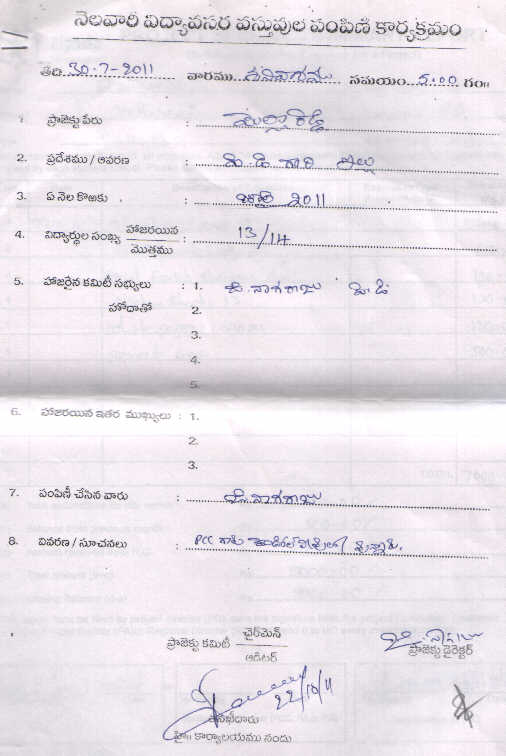 నెలవారి విద్యావసర వస్తువుల పంపిణి కార్యక్రమం
తేది. 30-7-2011 వారము. శనివారము సమయం. 5.00 గం॥
1. ప్రాజెక్టు పేరు :
2. ప్రదేశము / ఆవరణ : పి.డి గారి ఇల్లు
3. ఏ నెల కొఱకు : జులై 2011
4. విద్యార్థుల సంఖ్య హాజరయిన / మొత్తము : 13/14
5. హాజరైన కమిటీ సభ్యులు : 1. జి. నాగరాజు పి.డి
హోదాతో 2.
3.
4.
5.
6. హాజరయిన ఇతర ముఖ్యులు : 1.
2.
3.
7. పంపిణీ చేసిన వారు : జి. నాగరాజు
8. వివరణ / సూచనలు : PCC గారు
ప్రాజెక్టు కమిటీ చైర్‌మెన్ / ఆడిటర్
ప్రాజెక్టు డైరెక్టర్
22/10/11
తనిఖీదారు
హై॥ కార్యాలయము నందు